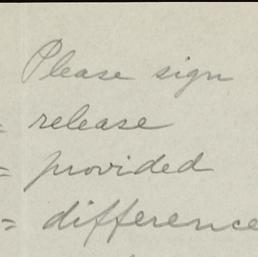 Please sign
= release
= provided
= difference